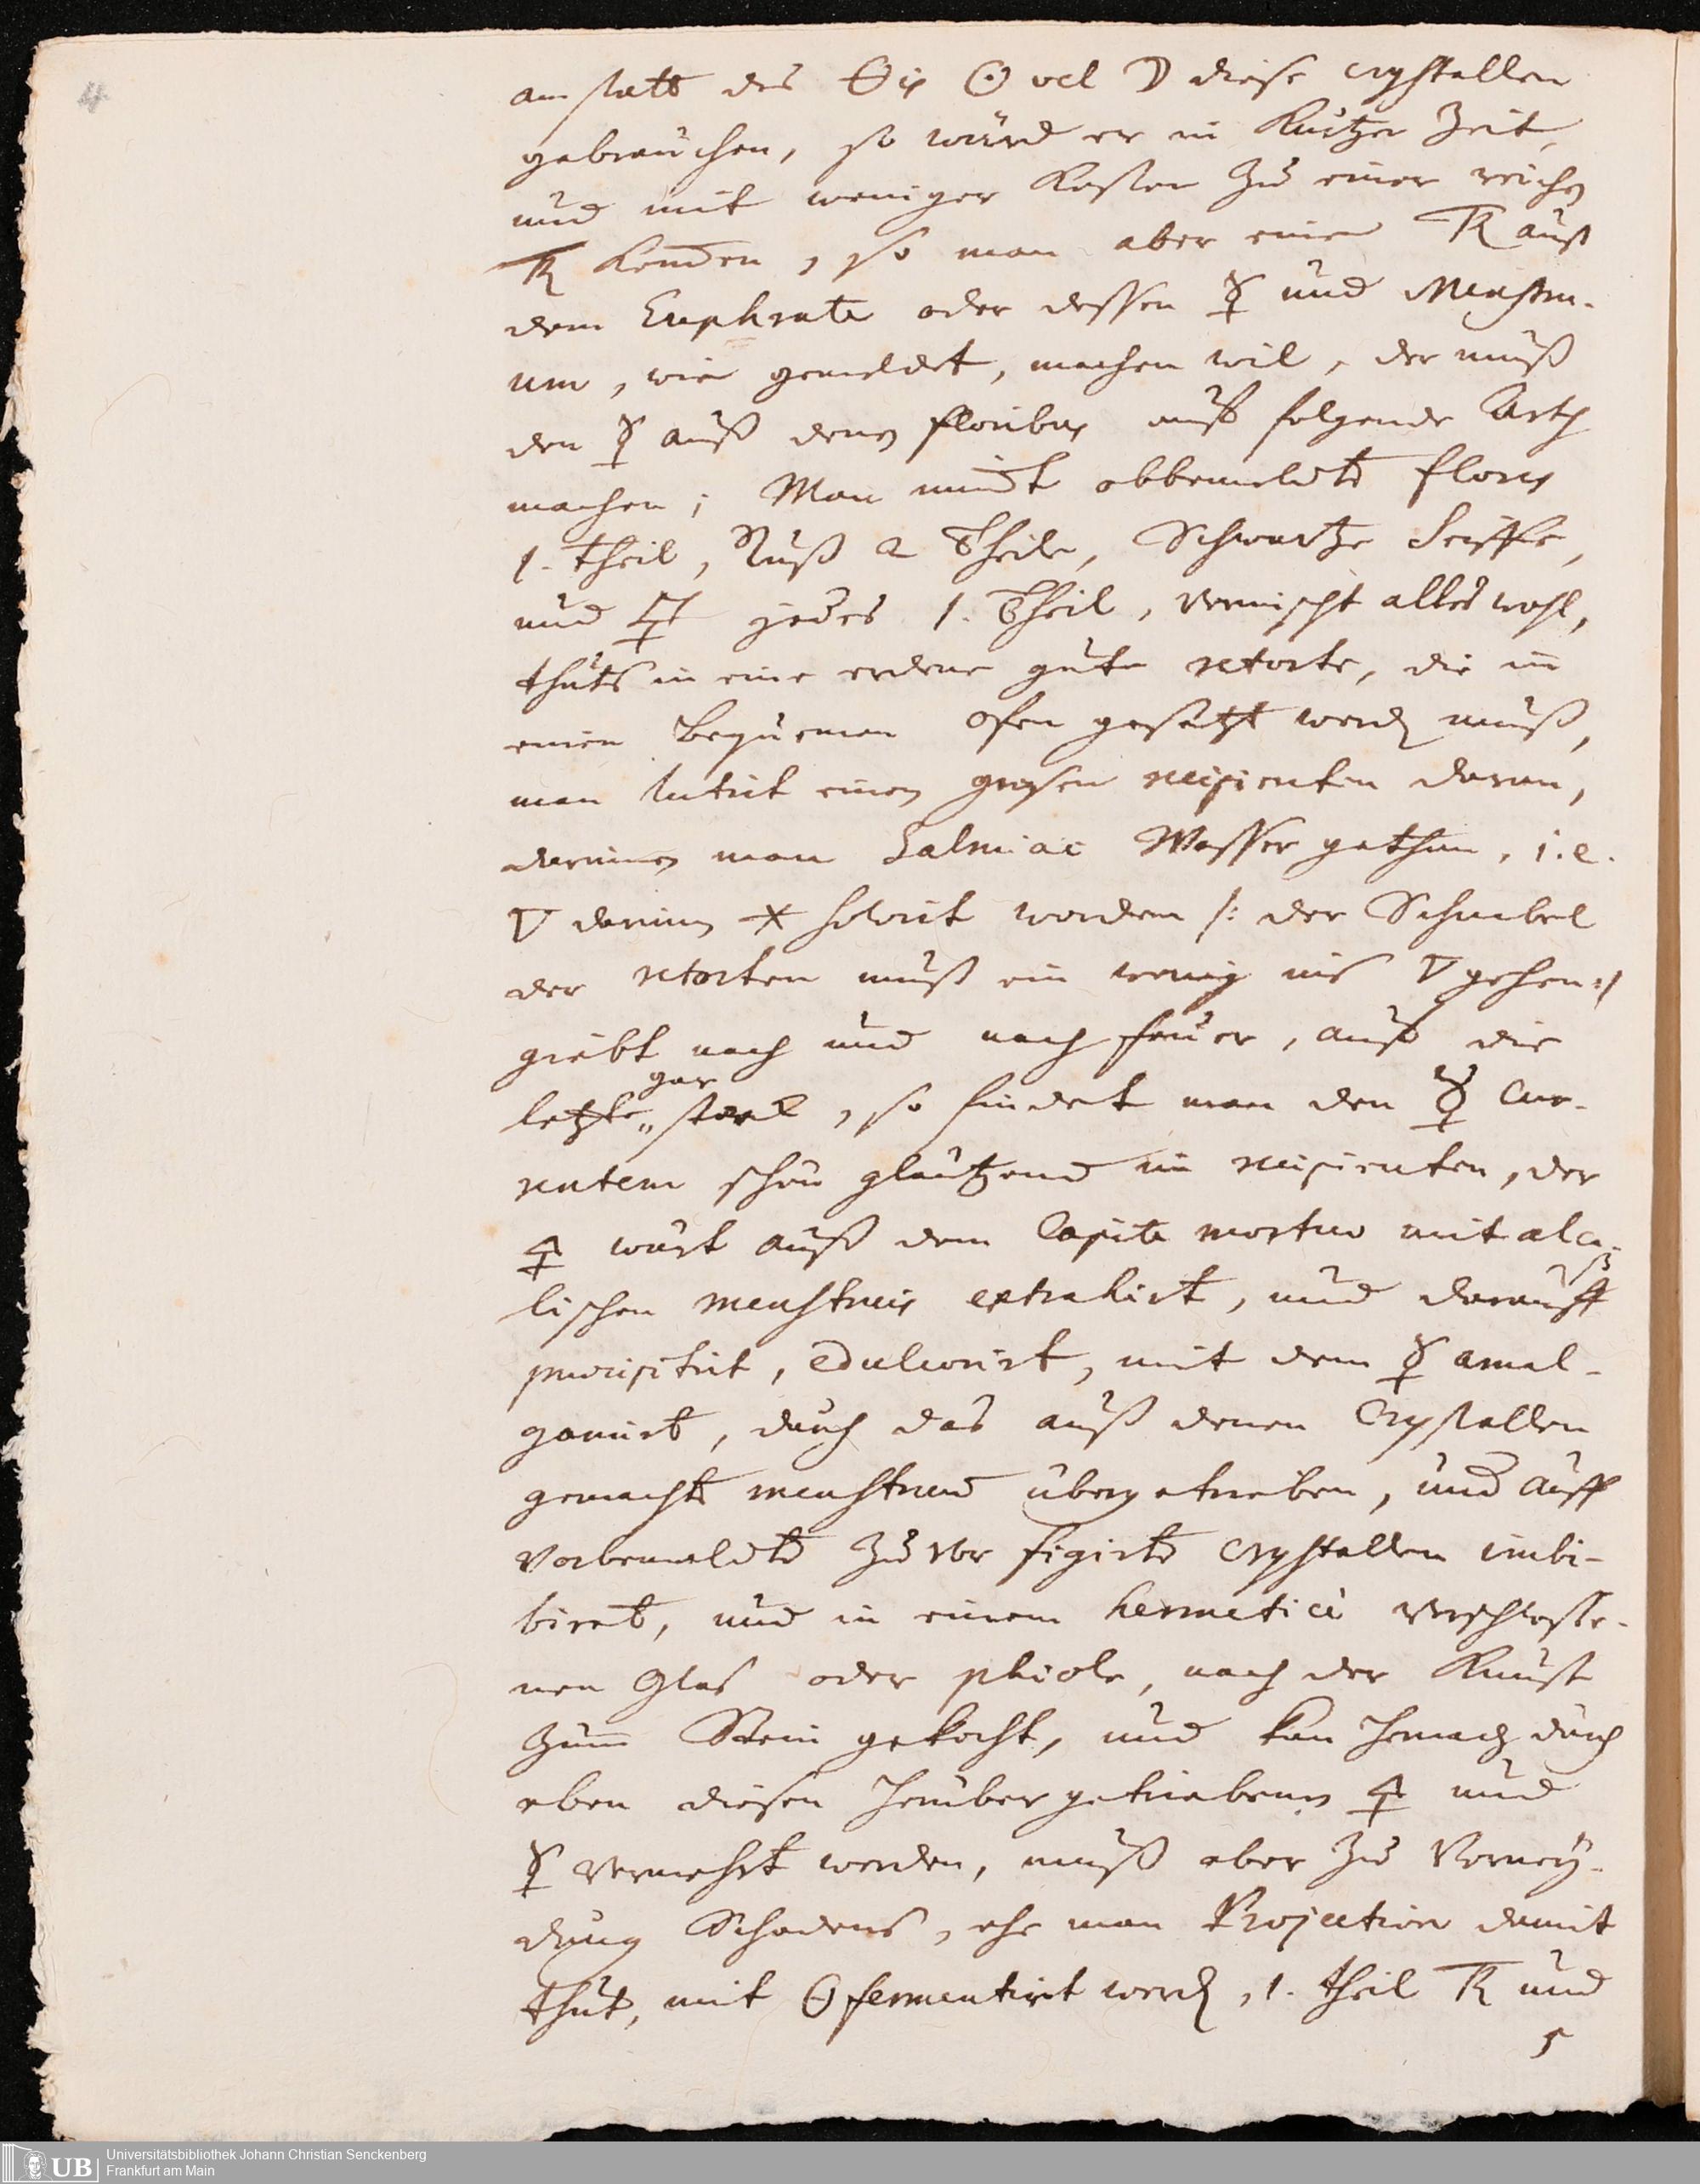 4
anstatt des 🜔is ☉ vel ☽ diese crystallen
gebrauchen, so würd er in Kurtzer Zeit,
und mit weniger Kosten Zu einer reichen
TR kommen, so man aber eine TR auß
dem Euphrate oder dessen ☿ und Menstru-
um, wie gemeldet, machen wil, der muß
den ☿ auß denen floribus auff folgende Arth
machen; Man nimbt obbemeldte flores
1. theil, Ruß 2 Theile, Schwartze Seiffe,
und jedes 1. Theil, vermischt alles wohl,
thuts in eine erdene gute retorte, die in
einen bequemen ofen gesetzt werden muß,
man lutirt einen grosen recipienten daran,
darinnen man Salmiac Wasser gethan, i.e.
🜄 darinn 🞶 solvirt worden /: der Schnabel
der retorten muß ein wenig ins 🜄 gehen :/
giebt nach und nach feuer, auff die
letzte gar starck, so findet man den ☿ cur-
rentem schön gläntzend im recipienten, der
🜍 wirt auß dem Capite mortuo mit alca-
lischen menstruis extrahirt, und darauß
præcipitirt, edulcorirt, mit dem ☿ amal-
gamirt, durch das auß denen Crystallen
gemachte menstruum übergetrieben, und auff
vorbemeldte zuvor figirte crystallen imbi-
biret, und in einem hermeticè verschlosse-
nen Glas oder phiole, nach der Kunst
zum Stein gekocht, und kan hernach durch
eben diesen herübergetriebenen 🜍 und
☿ vermehrt werden, muß aber zu Vermey-
dung Schadens, ehe man Projection damit
thut, mit ☉ fermentirt werden, 1. theil TR und
5
Universitätsbibliothek Johann Christian Senckenberg
UB Frankfurt am Main